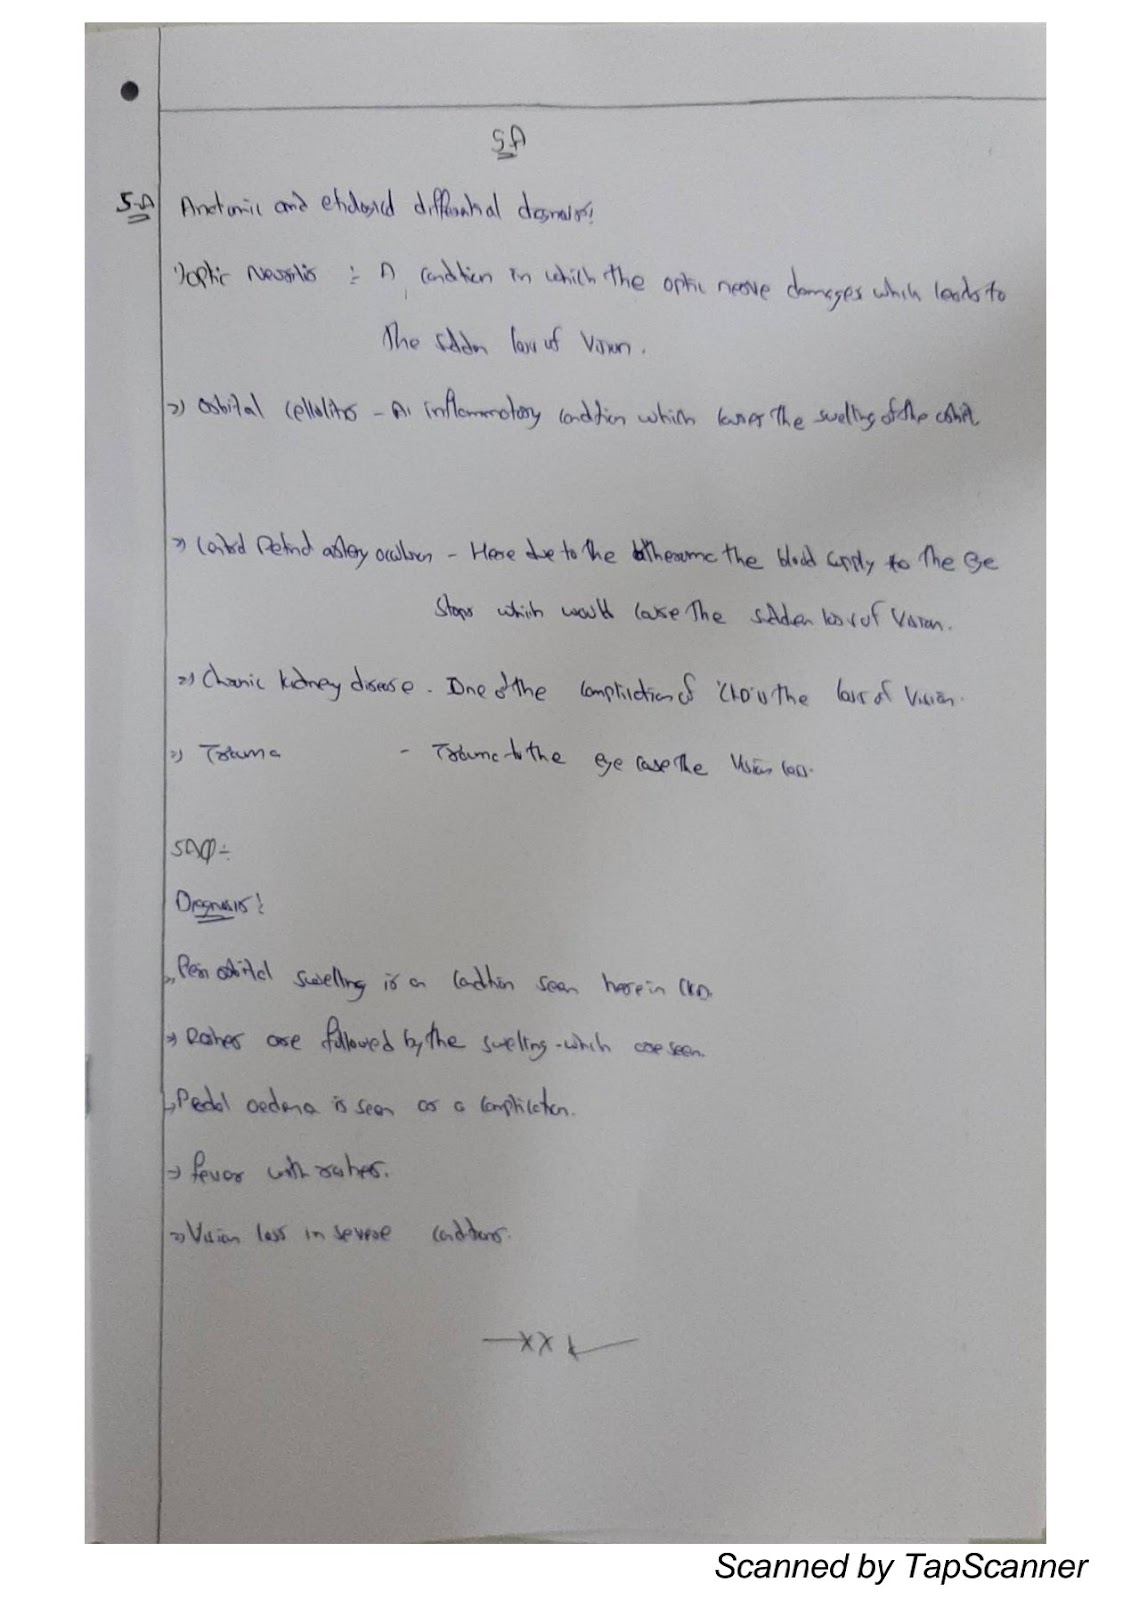 5A
5-A Anatomic and etiological differential diagnosis:
1) Optic Neuritis :- A condition in which the optic nerve damages which leads to
The sudden loss of Vision.
2) Orbital cellulitis - An inflammatory condition which causes the swelling of the orbit
=> Central Retinal artery occlusion - Here due to the the blood supply to the eye
stops which would cause the sudden loss of Vision.
=> Chronic kidney disease - One of the complication of 'CKD' is the loss of Vision.
=> Trauma - Trauma to the eye case the Vision loss.
5AQ :-
Diagnosis :
Peri orbital swelling is a condition seen here in CKD.
=> Rashes are followed by the swelling - which are seen.
Pedal oedema is seen as a complication.
=> fever with rashes.
=> Vision loss in severe conditions.
xx
Scanned by TapScanner